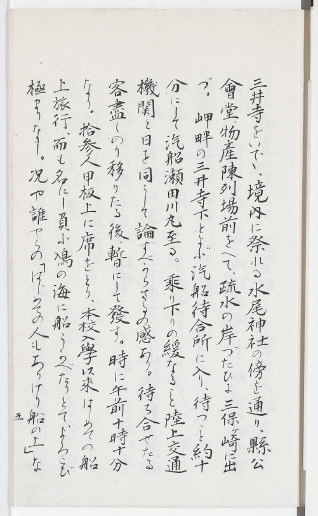 三井寺をいで、境内に祭れる水尾神社の傍を通り、縣公
會堂物産陳列場前をへて、疏水の岸づたひに三保ヶ崎に出
づ。岬畔の三井寺下とふ汽船待合所に入り、待つこと約十
分にして汽船瀬田川丸至る。乘り下りの緩なると陸上交通
機関と日を同うして論ずべからざるの感あり。待ち合せたる
客盡しのり移りたる後暫にして發す。時に午前十時十分
なり。拾参人甲板上に席をとる、本校入學以来はじめての船
上旅行、而も名にし負ふ鳰の海に船うかべたりとて、よろこび
極まりなし。況や誰やらの「はじめの人もありけり船の上」な
五